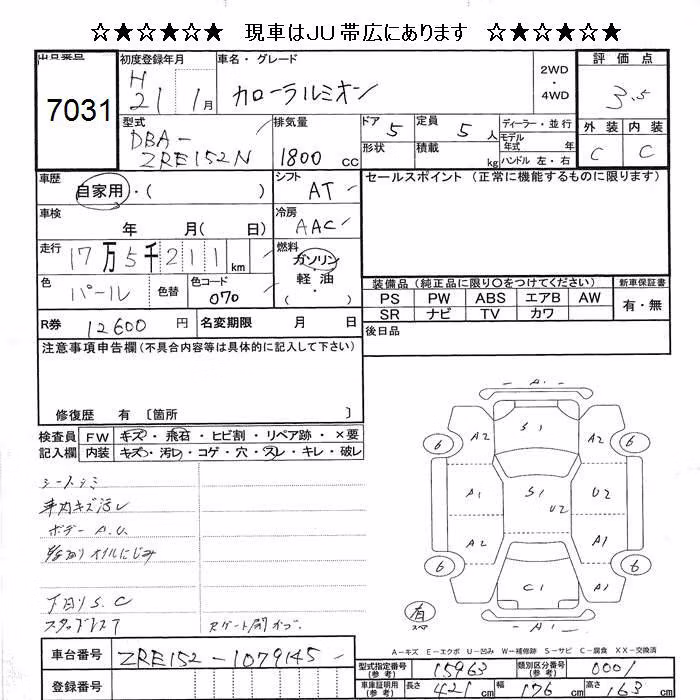 ☆★☆★☆ 現車はJU帯広にあります ☆★☆★☆
出品番号 7031
初度登録年月 H 21 1月
車名・グレード カローラルミオン
2WD・4WD
評価点 3.5
外装 C 内装 C
型式 DBA-ZRE152N
排気量 1800cc
ドア 5 形状
定員 5人 積載 kg
ディーラー・並行
モデル年式 年
ハンドル 左・右
車歴 自家用・( )
シフト AT
車検 年 月( 日)
冷房 AAC
走行 17万5千211km
燃料 ガソリン・軽油
色 パール 色替 色コード 070
R券 12600円 名変期限 月 日
セールスポイント(正常に機能するものに限ります)
装備品(純正品に限り○をつけてください) 新車保証書
PS PW ABS エアB AW 有・無
SR ナビ TV カワ
後日品
注意事項申告欄(不具合内容等は具体的に記入して下さい)
修復歴 有 〔箇所 〕
検査員記入欄 FW キズ・飛石・ヒビ割・リペア跡・×要
内装 キズ・汚レ・コゲ・穴・スレ・キレ・破レ
シートシミ
車内キズ汚レ
ボデーA.U
オイルにじみ
下回りS.C
スタッドレス
- A1 -
6 A2 S1 A2 6
A1 S1 U2 U2
A2 A1
6 C1 A1 6
有 スペ
- A1 -
A-キズ E-エクボ U-凹み W-補修跡 S-サビ C-腐食 XX-交換済
車台番号 ZRE152-1079145
登録番号
型式指定番号(参考) 15963 類別区分番号(参考) 0001
車庫証明用(参考) 長さ 421cm 幅 176cm 高さ 163cm